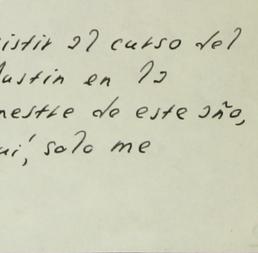 istir al curso del
ustin en la
mestre de este año,
uí, solo me